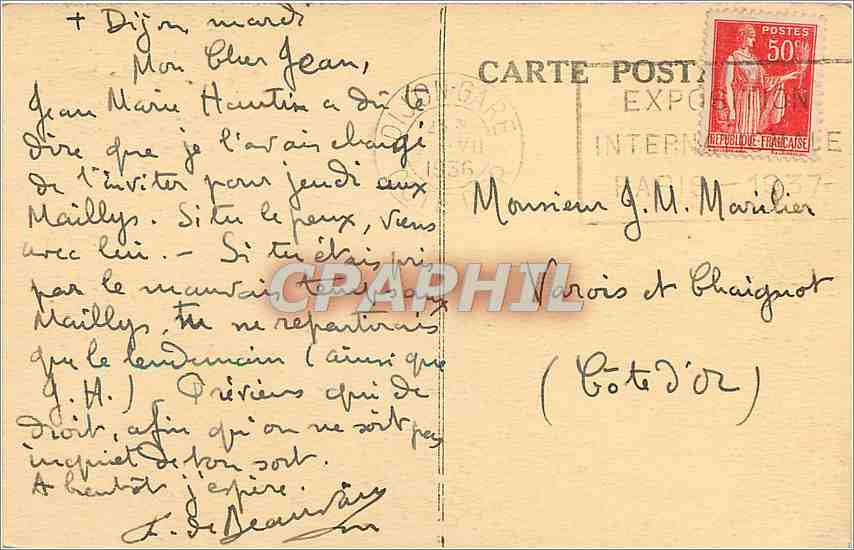 + Dijon mardi
Mon Cher Jean,
Jean Marie Hautin a dû te
dire que je l'avais chargé
de t'inviter pour jeudi aux
Maillys. Si tu le peux, viens
avec lui. - Si tu étais pris
par le mauvais temps aux
Maillys, tu ne repartirais
que le lendemain (ainsi que
J.H.) Préviens qui de
droit, afin qu'on ne soit pas
inquiet de ton sort.
A bientôt j'espère.
de Beauvais
CARTE POSTA
POSTES
50c
REPUBLIQUE FRANCAISE
DIJON-GARE
VII
1936
EXPOSITION
INTERNATIONALE
PARIS - 1937-
Monsieur J. M. Marilier
Varois et Chaignot
(Côte d'Or)
CPAPHIL